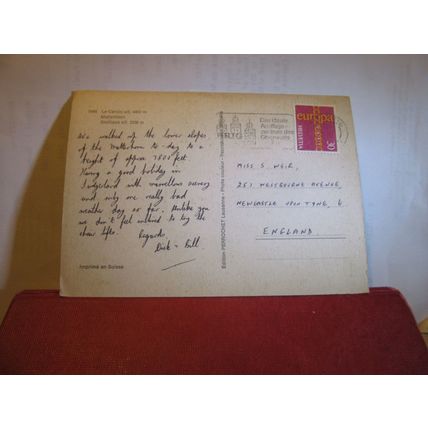 Le Cervin alt.
Matterhorn
We walked up the lower slopes
of the Matterhorn to-day to a
height of approx 7800 feet.
Having a good holiday in
Switzerland with marvellous scenery
and only one really bad
weather day so far. Unlike you
we don't feel inclined to try the
chair lifts.
Regards,
Bill.
Imprimé en Suisse
Edition PERROCHET Lausanne
BRIG
Das ideale
Ausflugs-
zentrum des
Oberwallis
europa
HELVETIA
MISS S. WEIR,
257, WESTBOURNE AVENUE,
NEWCASTLE UPON TYNE, 6
ENGLAND